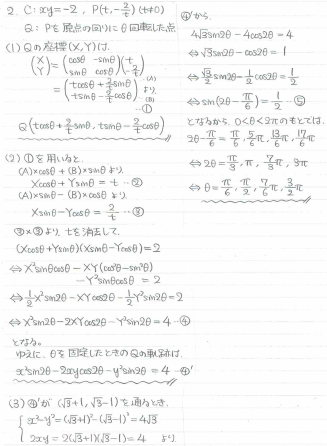 2. C: xy=-2, P(t, -2/t) (t≠0)
Q: Pを原点の回りにθ回転した点
(1) Qの座標(X,Y)は、
(X Y) = (cosθ -sinθ sinθ cosθ)(t -2/t)
= (tcosθ+2/t sinθ tsinθ-2/t cosθ) …(A) より、…(B) …①
Q(tcosθ+2/t sinθ, tsinθ-2/t cosθ)
(2) ①を用いると、
(A)×cosθ+(B)×sinθより、
Xcosθ+Ysinθ=t …②
(A)×sinθ-(B)×cosθより、
Xsinθ-Ycosθ=2/t …③
②×③より、tを消去して、
(Xcosθ+Ysinθ)(Xsinθ-Ycosθ)=2
⇔X²sinθcosθ-XY(cos²θ-sin²θ)
-Y²sinθcosθ=2
⇔1/2X²sin2θ-XYcos2θ-1/2Y²sin2θ=2
⇔X²sin2θ-2XYcos2θ-Y²sin2θ=4 …④
となる。
ゆえに、θを固定したときのQの軌跡は、
x²sin2θ-2xycos2θ-y²sin2θ=4 …④'
(3) ④'が(√3+1, √3-1)を通るとき、
{x²-y²=(√3+1)²-(√3-1)²=4√3
2xy=2(√3+1)(√3-1)=4 より、
④'から、
4√3sin2θ-4cos2θ=4
⇔√3sin2θ-cos2θ=1
⇔√3/2sin2θ-1/2cos2θ=1/2
⇔sin(2θ-π/6)=1/2 …⑤
となるから、0<θ<2πのもとでは、
2θ-π/6=π/6, 5/6π, 13/6π, 17/6π
⇔2θ=π/3, π, 7/3π, 3π
⇔θ=π/6, π/2, 7/6π, 3/2π